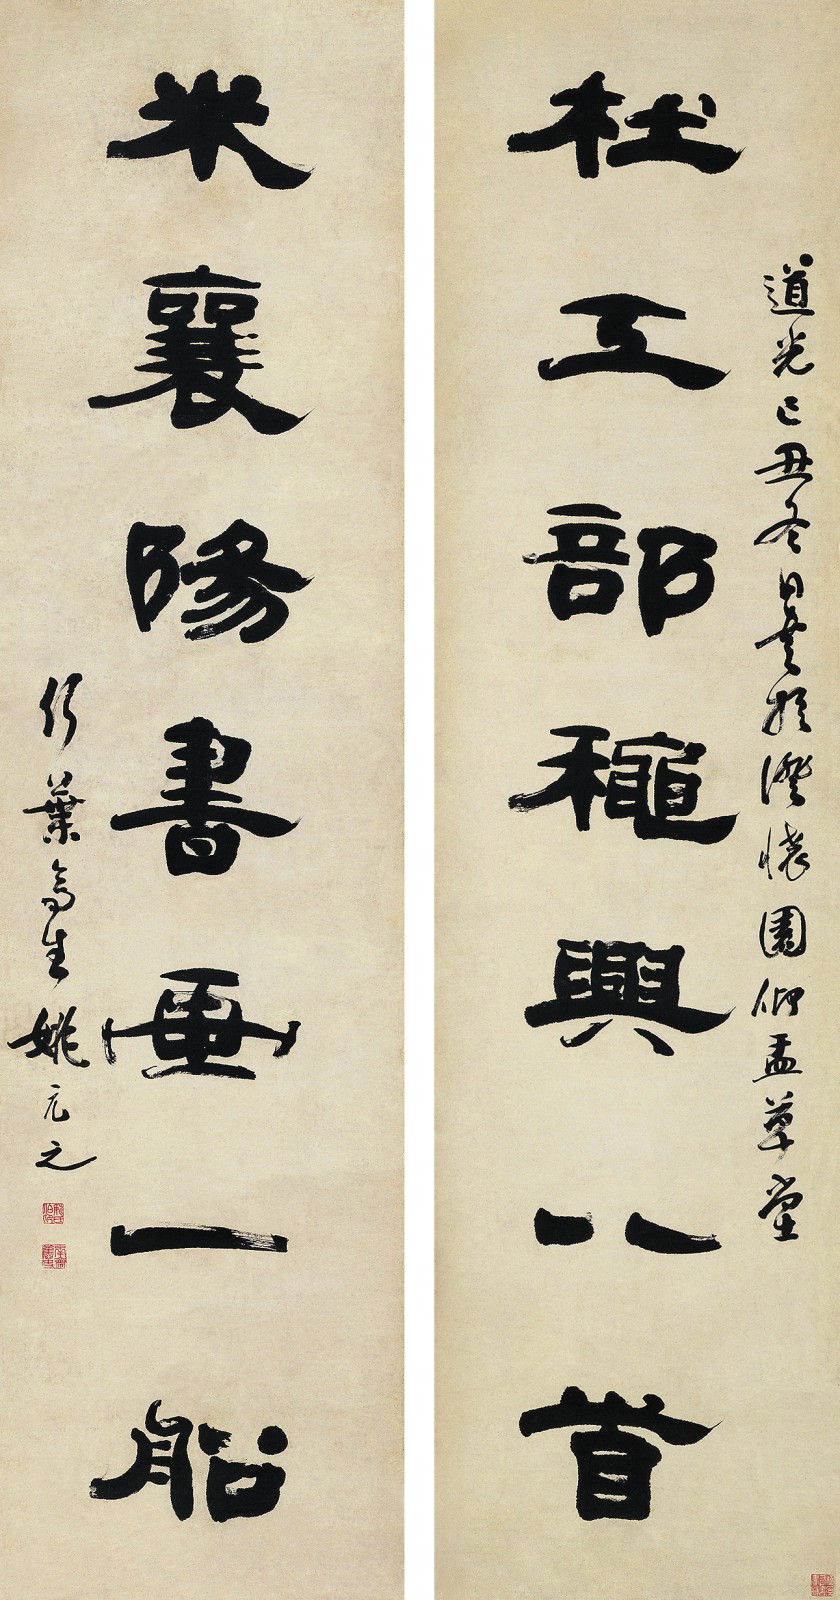 道光己丑冬日書於澄懷園仰孟草堂
杜工部秋興八首
米襄陽書画一船
竹葉亭生姚元之